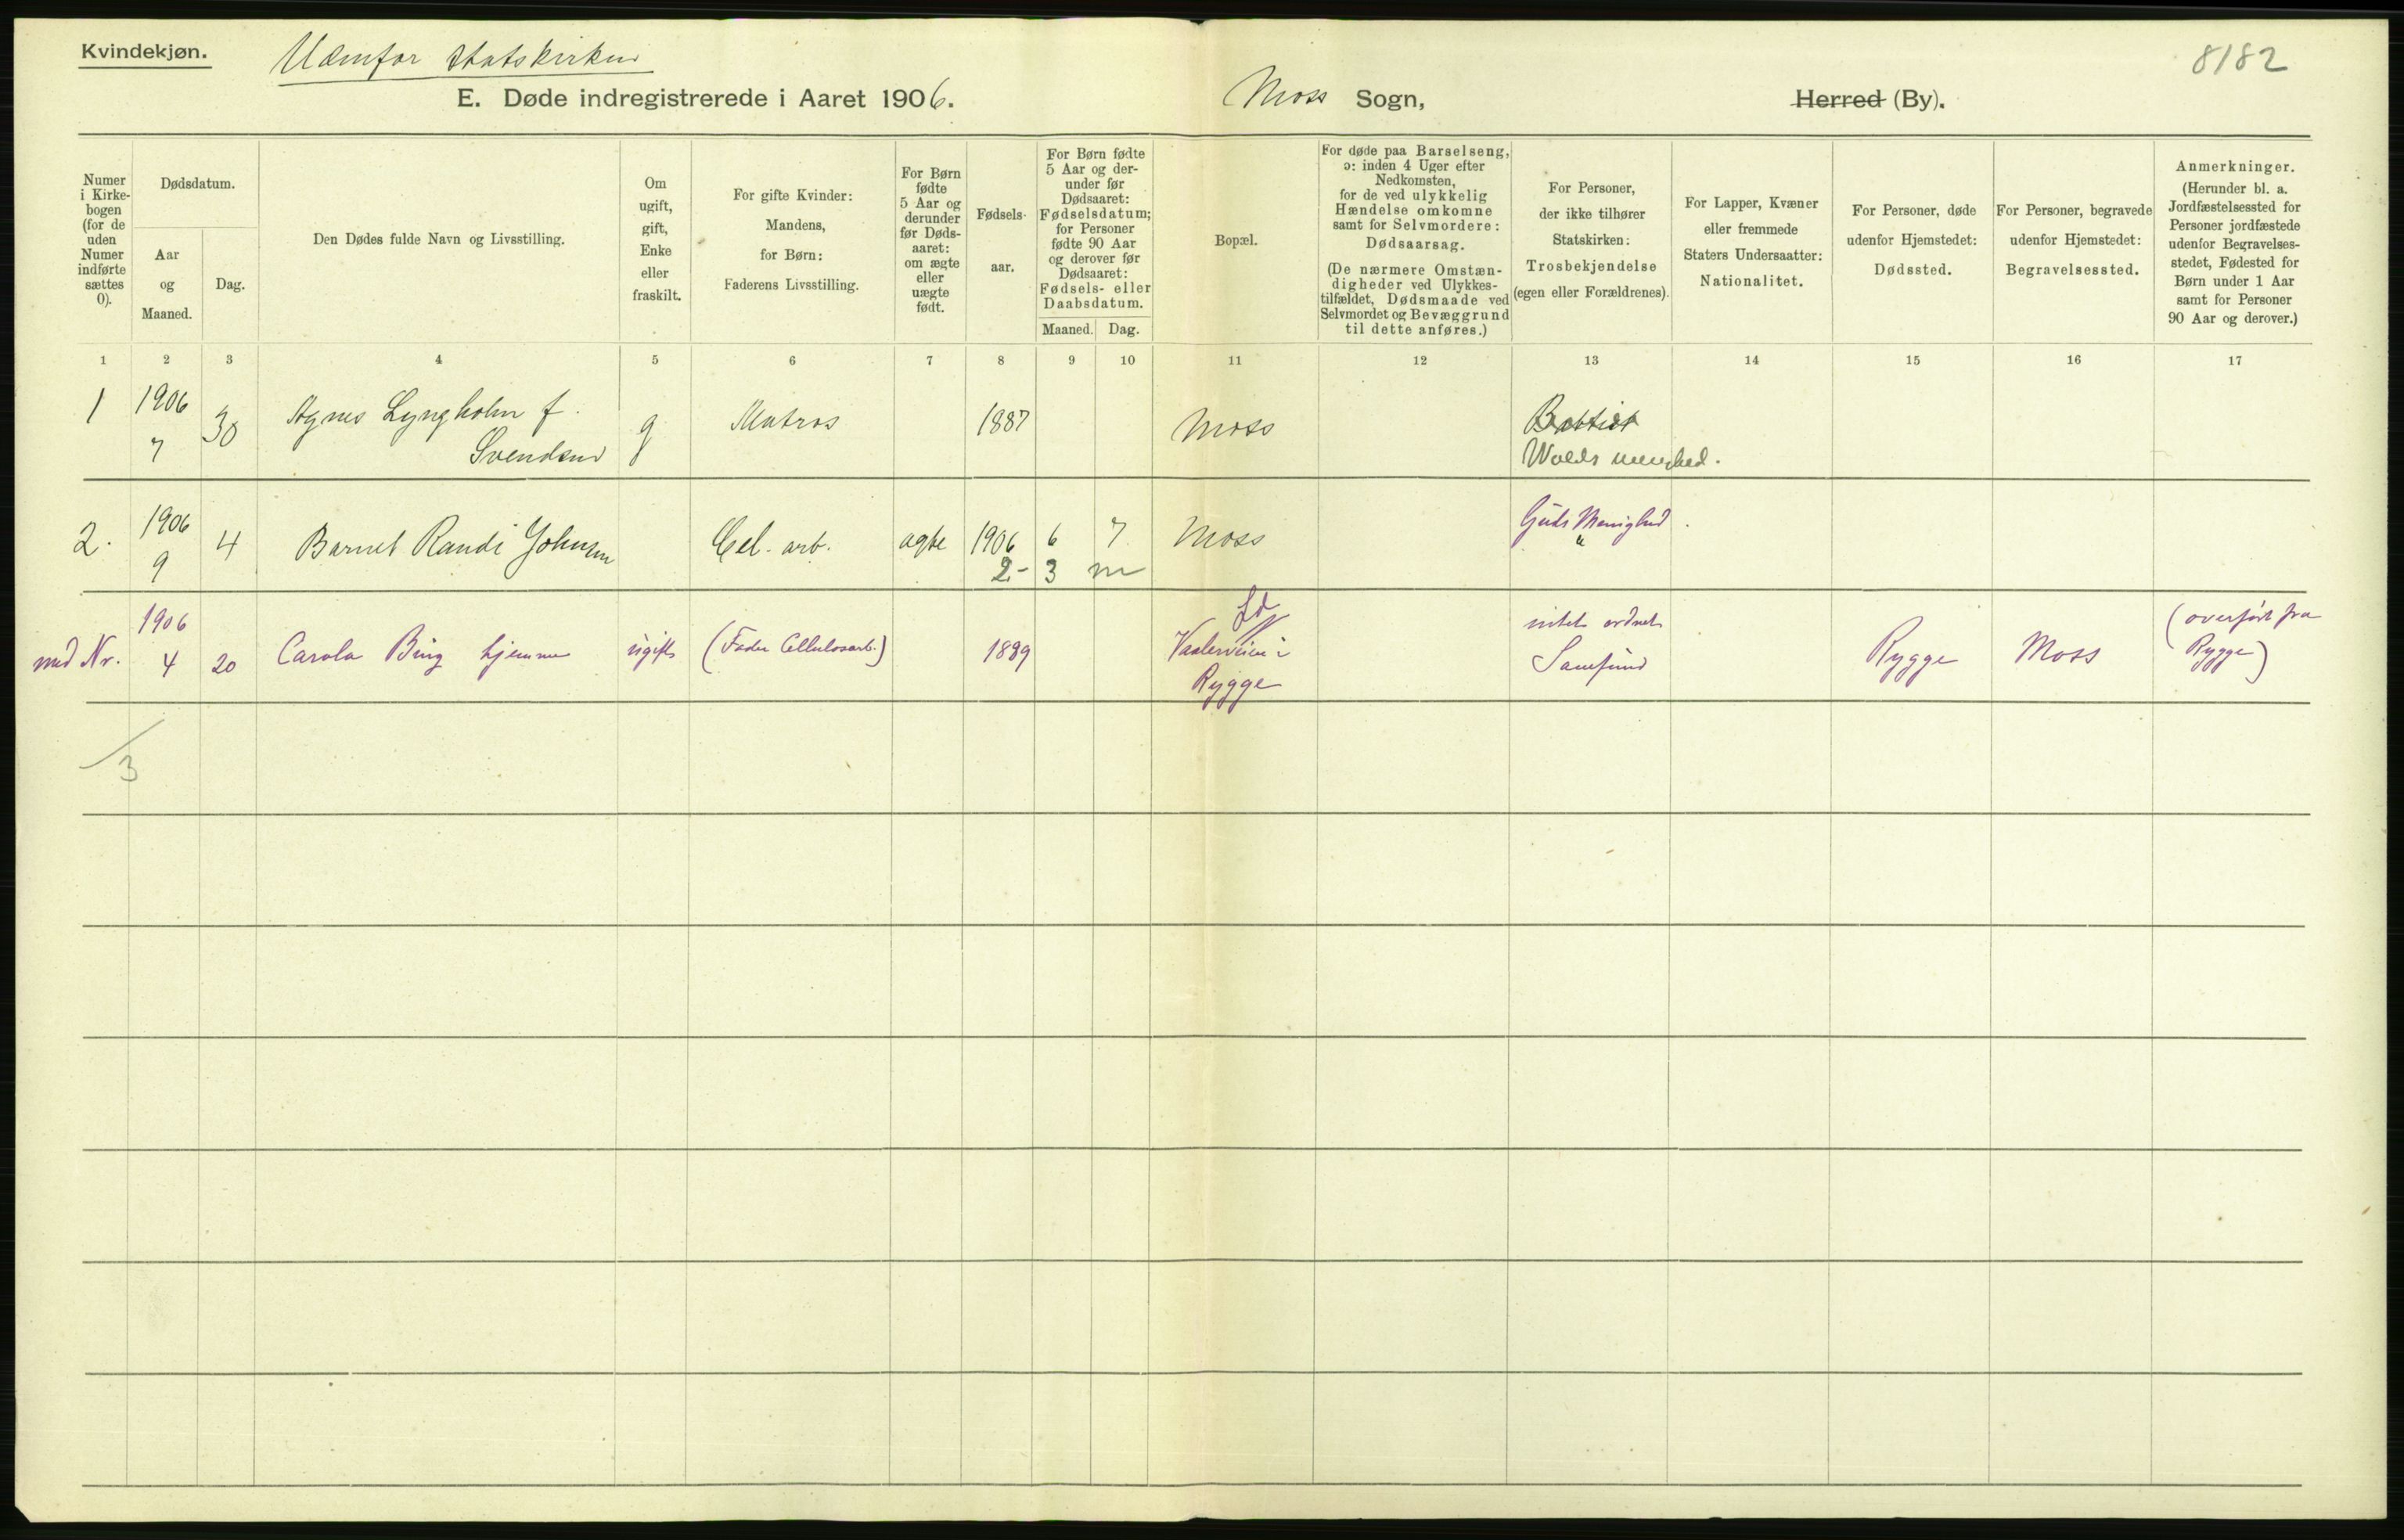 Kvindekjøn.
Udenfor Statskirken
8182
E. Døde indregistrerede i Aaret 1906.
Moss Sogn,
Herred (By).
Numer i Kirkebogen (for de uden Numer indførte sættes 0).
Dødsdatum.
Aar og Maaned.
Dag.
Den Dødes fulde Navn og Livsstilling.
Om ugift, gift, Enke eller fraskilt.
For gifte Kvinder: Mandens, for Børn: Faderens Livsstilling.
For Børn fødte 5 Aar og derunder før Dødsaaret: om ægte eller uægte født.
Fødselsaar.
For Børn fødte 5 Aar og derunder før Dødsaaret: Fødselsdatum; for Personer fødte 90 Aar og derover før Dødsaaret: Fødsels- eller Daabsdatum.
Maaned. Dag.
Bopæl.
For døde paa Barselseng, ɔ: inden 4 Uger efter Nedkomsten, for de ved ulykkelig Hændelse omkomne samt for Selvmordere: Dødsaarsag.
(De nærmere Omstændigheder ved Ulykkestilfældet, Dødsmaade ved Selvmordet og Bevæggrund til dette anføres.)
For Personer, der ikke tilhører Statskirken: Trosbekjendelse (egen eller Forældrenes).
For Lapper, Kvæner eller fremmede Staters Undersaatter: Nationalitet.
For Personer, døde udenfor Hjemstedet: Dødssted.
For Personer, begravede udenfor Hjemstedet: Begravelsessted.
Anmerkninger.
(Herunder bl. a. Jordfæstelsessted for Personer jordfæstede udenfor Begravelsesstedet, Fødested for Børn under 1 Aar samt for Personer 90 Aar og derover.)
1 2 3 4 5 6 7 8 9 10 11 12 13 14 15 16 17
1 1906 7 30 Agnes Lyngholm f. Svendsen g Matros 1887 Moss Babtist Wolds menighed.
2. 1906 9 4 Barnet Randi Johnsen Cel. arb. ægte 1906 6 7 Moss Guds Menighed.
2 - 3 m
med Nr. 1906 4 20 Carola Bing hjemme ugift (Fader Cellulosearb.) 1889 Vaalerveien i Rygge intet ordnet Samfund Rygge Moss (overført fra Rygge)
3